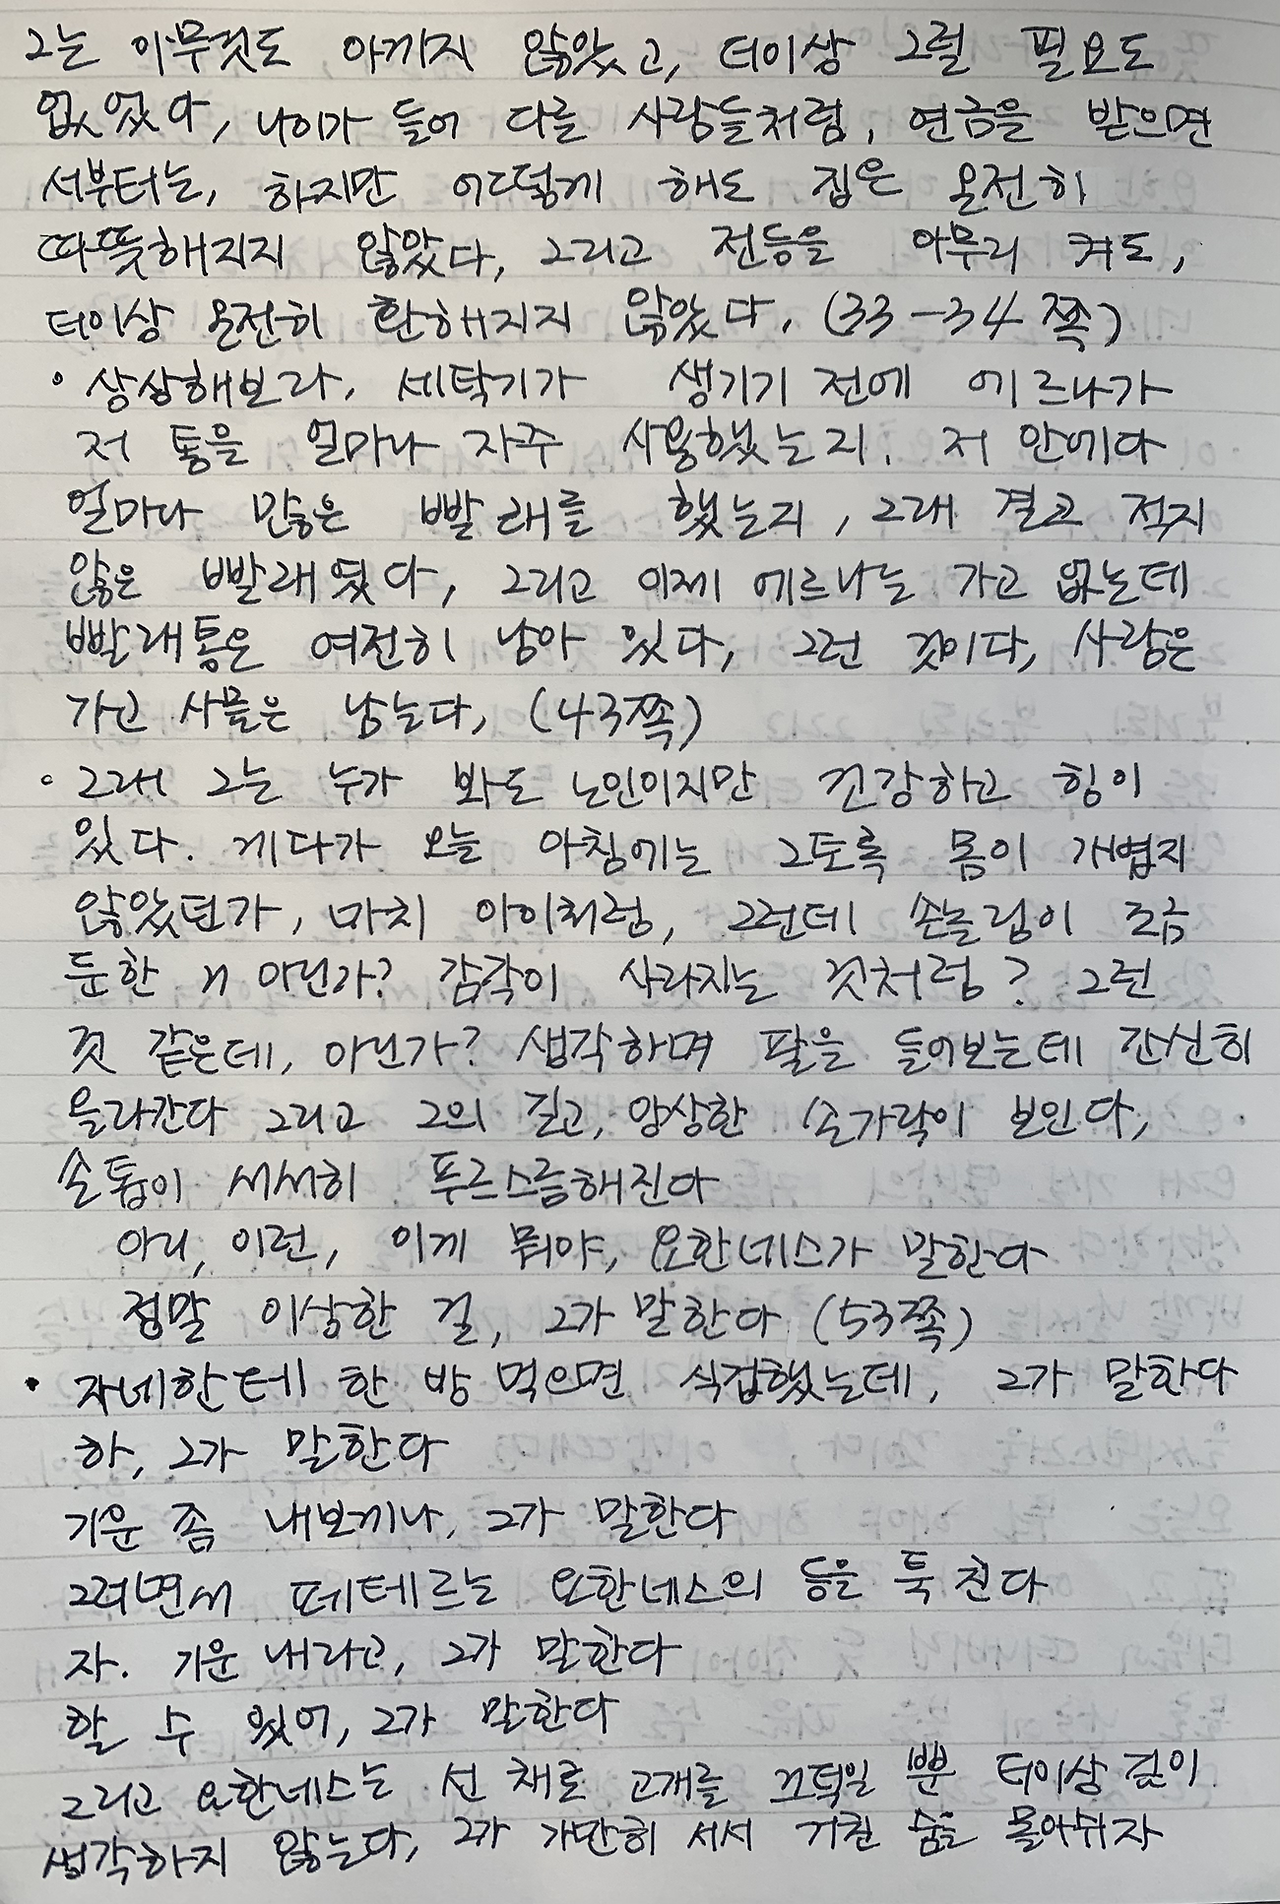 그는 아무것도 아끼지 않았고, 더이상 그럴 필요도
없었다, 나이가 들어 다른 사람들처럼, 연금을 받으면
서부터는, 하지만 어떻게 해도 집은 온전히
따뜻해지지 않았다, 그리고 전등을 아무리 켜도,
더이상 온전히 환해지지 않았다, (33-34쪽)
• 상상해보라, 세탁기가 생기기 전에 에르나가
저 통을 얼마나 자주 사용했는지. 저 안에다
얼마나 많은 빨래를 했는지, 그래 결코 적지
않은 빨래였다, 그리고 이제 에르나는 가고 없는데
빨래통은 여전히 남아 있다, 그런 것이다, 사람은
가고 사물은 남는다, (43쪽)
• 그래 그는 누가 봐도 노인이지만 건강하고 힘이
있다. 게다가 오늘 아침에는 그토록 몸이 가볍지
않았던가, 마치 아이처럼, 그런데 손놀림이 조금
둔한 게 아닌가? 감각이 사라지는 것처럼? 그런
것 같은데, 아닌가? 생각하며 팔을 들어보는데 간신히
올라간다 그리고 그의 길고, 앙상한 손가락이 보인다,
손톱이 서서히 푸르스름해진다
아니, 이런, 이게 뭐야, 요한네스가 말한다
정말 이상한 걸, 그가 말한다 (53쪽)
• 자네한테 한 방 먹으면 식겁했는데, 그가 말한다
하, 그가 말한다
기운 좀 내보게나, 그가 말한다
그러면서 페테르는 요한네스의 등을 툭 친다
자. 기운 내라고, 그가 말한다
할 수 있어, 그가 말한다
그리고 요한네스는 선 채로 고개를 끄덕일 뿐 더이상 깊이
생각하지 않는다, 그가 가만히 서서 거친 숨을 몰아쉬자